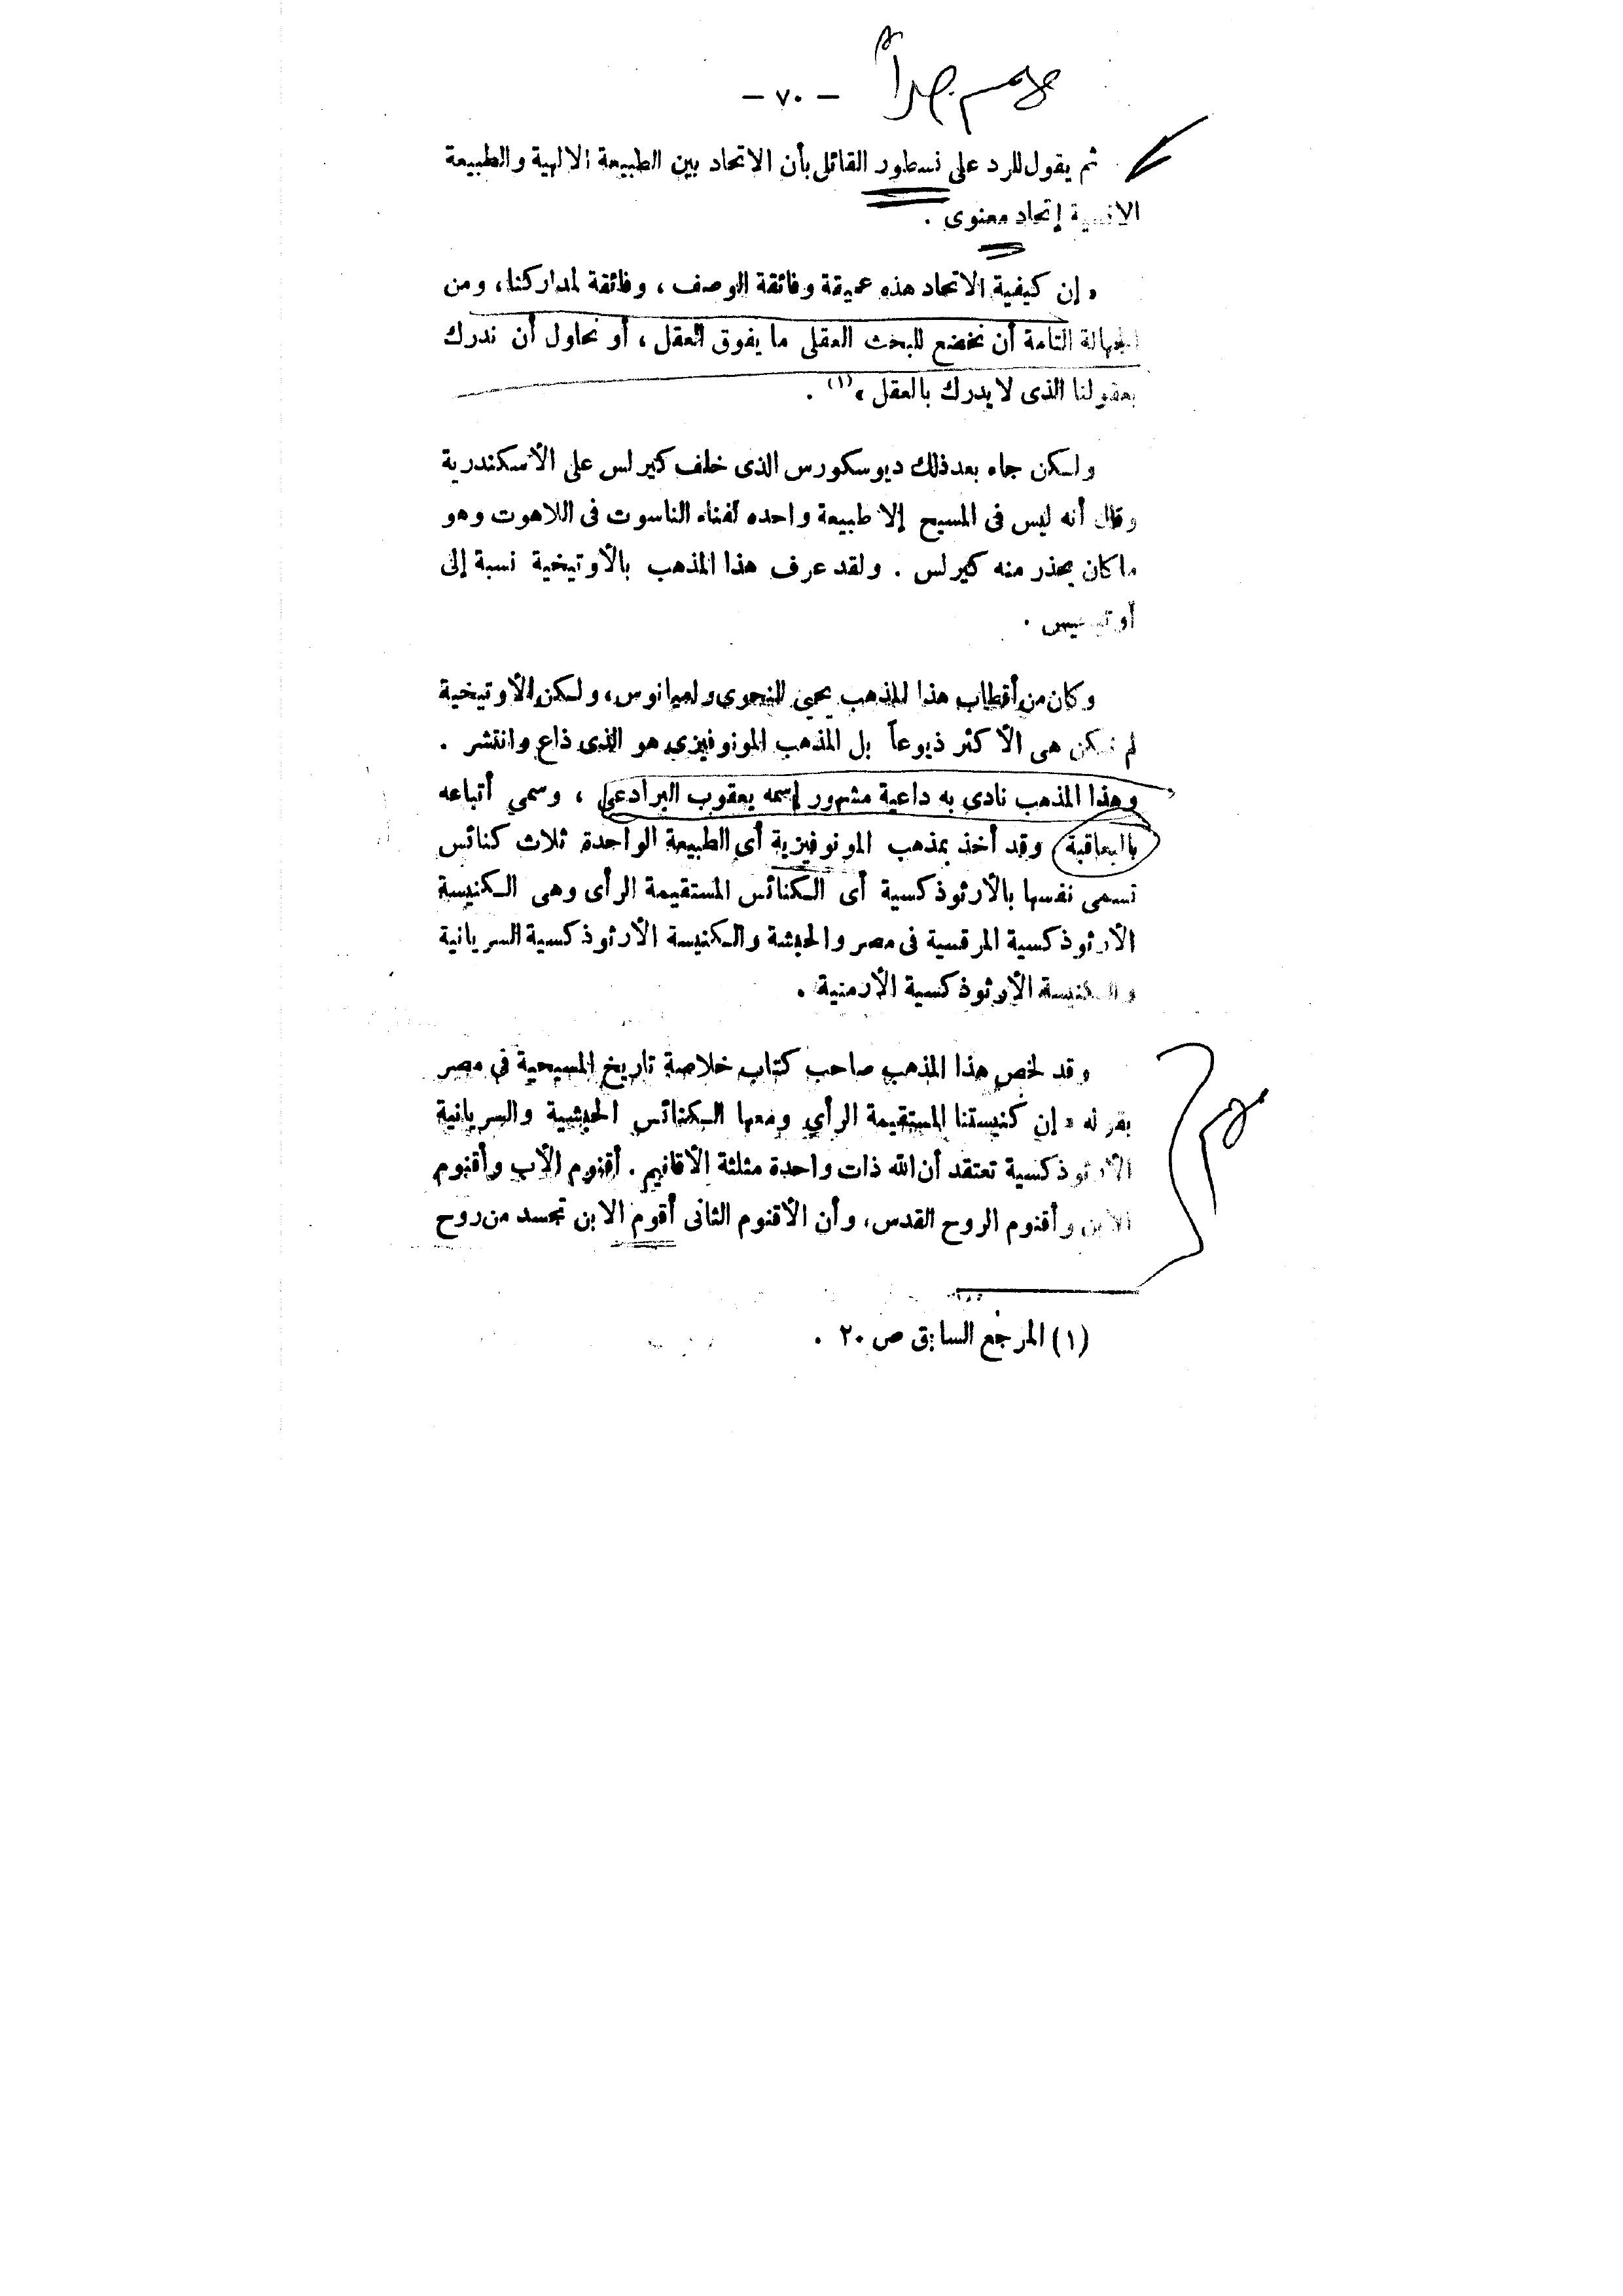 مهم جداً
— ٧٠ —
ثم يقول للرد على نسطور القائل بأن الاتحاد بين الطبيعة الالهية والطبيعة
إتحاد معنوى .
« إن كيفية الاتحاد هذه عميقة وفائقة الوصف ، وفائقة لمداركنا ، ومن
الجهالة التامة أن نخضع للبحث العقلى ما يفوق العقل ، أو نحاول أن ندرك
بعقولنا الذى لا يدرك بالعقل » (١) .
ولكن جاء بعد ذلك ديوسكورس الذى خلف كيرلس على الأسكندرية
وقال أنه ليس فى المسيح إلا طبيعة واحده لفناء الناسوت فى اللاهوت وهو
ما كان يحذر منه كيرلس . ولقد عرف هذا المذهب بالأوتيخية نسبة إلى
وكان من أقطاب هذا المذهب يحيى النحوى ولميانوس ، ولكن الأوتيخية
لم تكن هى الأكثر ذيوعاً بل المذهب المونوفيزى هو الذى ذاع وانتشر .
وهذا المذهب نادى به داعية مشهور إسمه يعقوب البرادعى ، وسمى أتباعه
باليعاقبة وقد أخذ بمذهب المونوفيزية أى الطبيعة الواحدة ثلاث كنائس
تسمى نفسها بالأرثوذكسية أى الكنائس المستقيمة الرأى وهى الكنيسة
الأرثوذكسية المرقسية فى مصر والحبشة والكنيسة الأرثوذكسية السريانية
والكنيسة الأرثوذكسية الأرمنية .
وقد لخص هذا المذهب صاحب كتاب خلاصة تاريخ المسيحية فى مصر
بقوله « إن كنيستنا المستقيمة الرأي ومعها الكنائس الحبشية والسريانية
الأرثوذكسية تعتقد أن الله ذات واحدة مثلثة الأقانيم . أقنوم الأب وأقنوم
الابن وأقنوم الروح القدس ، وأن الأقنوم الثانى أقوم الابن تجسد من روح
مهم
(١) المرجع السابق ص ٢٠ .